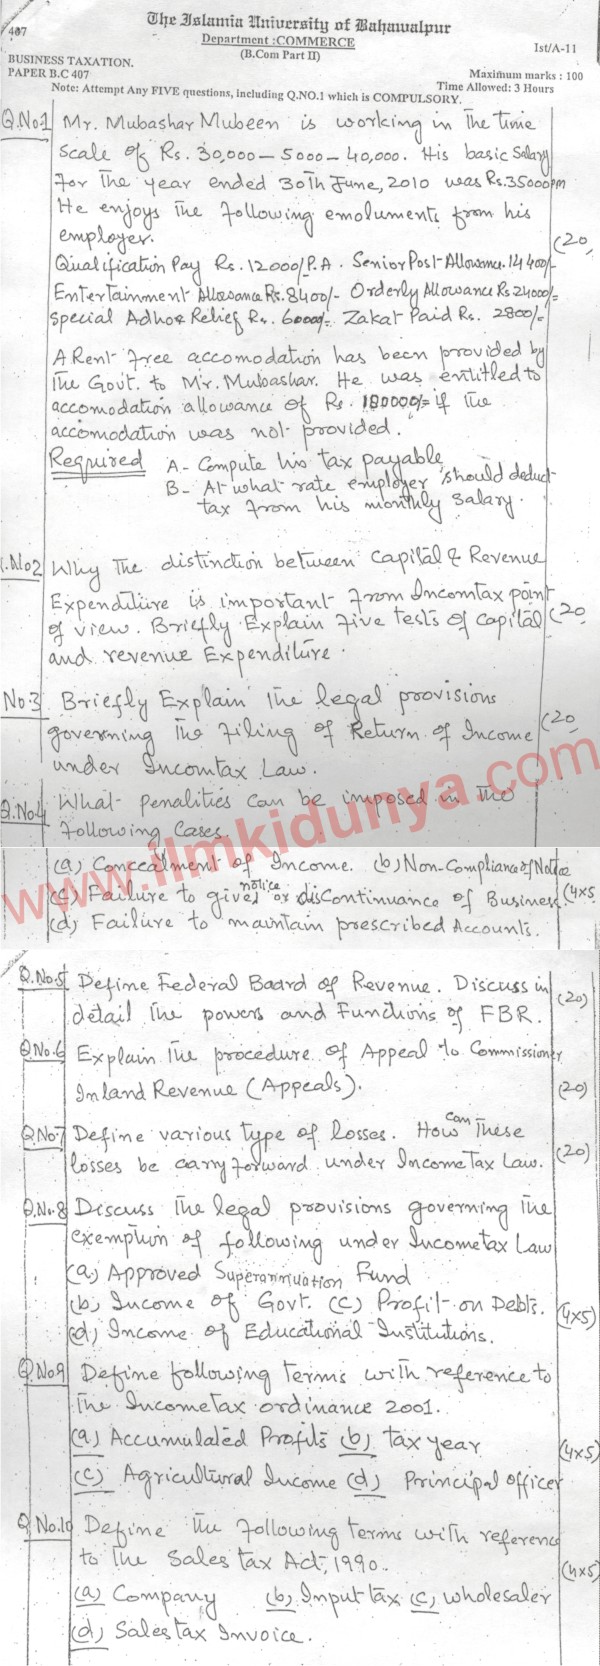 407
The Islamia University of Bahawalpur
Department :COMMERCE
(B.Com Part II)
Ist/A-11
BUSINESS TAXATION.
PAPER B.C 407
Maximum marks : 100
Time Allowed: 3 Hours
Note: Attempt Any FIVE questions, including Q.NO.1 which is COMPULSORY.
Q.No1 Mr. Mubashar Mubeen is working in The time
scale of Rs. 30,000 – 5000 – 40,000. His basic Salary
For The year ended 30Th June, 2010 was Rs.35000pm
He enjoys The following emoluments from his
employer. (20)
Qualification Pay Rs. 12000/P.A. Senior Post Allowance. 14400/-
Entertainment Allowance Rs. 8400/- Orderly Allowance Rs 24000/=
Special Adhoc Relief Rs. 6000/- Zakat Paid Rs. 2800/-
A Rent Free accomodation has been provided by
The Govt. to Mr. Mubashar. He was entitled to
accomodation allowance of Rs. 180000/= if The
accomodation was not provided.
Required A- Compute his tax payable
B- At what rate employer should deduct
tax from his monthly salary.
.No2 Why The distinction between Capital & Revenue
Expenditure is important from Incomtax point
of view. Briefly Explain Five tests of Capital (20)
and revenue Expenditure.
No3 Briefly Explain The legal provisions
governing The Filing of Return of Income (20)
under Incomtax Law.
Q.No4 What penalities can be imposed in The
Following Cases.
(a) Concealment of Income. (b) Non-Compliance of Notice
(c) Failure to give notice of disContinuance of Business. (4x5
(d) Failure to maintain prescribed Accounts.
www.ilmkidunya.com
Q.No.5 Define Federal Board of Revenue. Discuss in
detail The powers and Functions of FBR. (20)
Q.No.6 Explain The procedure of Appeal to Commissioner
Inland Revenue (Appeals). (20)
Q.No7 Define various type of losses. How can These
losses be carryforward under IncomeTax Law. (20)
Q.No.8 Discuss The legal provisions governing The
exemption of following under Incometax Law
(a) Approved Superannuation Fund
(b) Income of Govt. (c) Profit on Debts. (4x5)
(d) Income of Educational Institutions.
Q.No9 Define following Terms with reference to
The Incometax ordinance 2001.
(a) Accumulated Profits (b) tax year (4x5)
(c) Agricultural Income (d) Principal officer
Q.No.10 Define The following terms with reference
to The Sales tax Act, 1990. (4x5)
(a) Company (b) Input tax (c) wholesaler
(d) Sales tax Invoice.